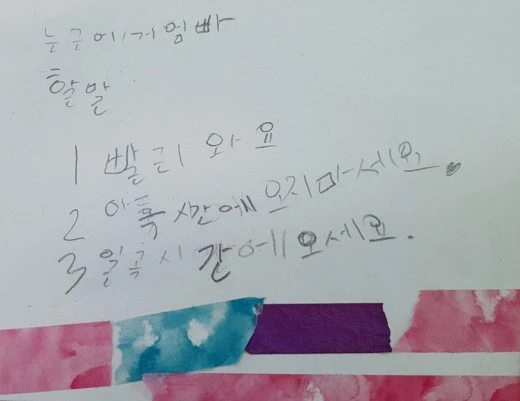 누군에/게 엄빠
할말
1 빨리 와요
2 아홉 시간에 오지마세요.
3 일곱 시 간에 오세요.